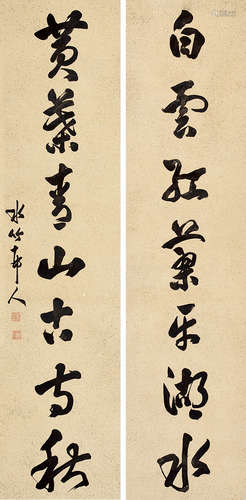 白雲紅平湖水
黃葉青山古寺秋
水竹邨人